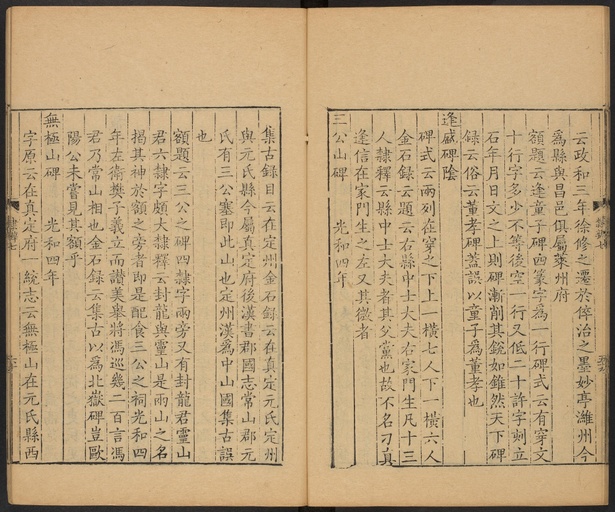 云政和三年徐修之遷於倅治之墨妙亭濰州今
爲縣與昌邑俱屬萊州府
額題云逄童子碑四篆字為一行碑式云有穿文
十行字多少不等後空一行又低二十許字刻立
石年月日文之上則碑漸削其銳如錐然天下碑
録云俗云董孝碑蓋誤以童子爲董孝也
逄盛碑陰
碑式云兩列在穿之下上一橫七人下一橫六人
金石録云題云右縣中士大夫右家門生凡十三
人隷釋云縣中士大夫者其父黨也故不名刁真
逄信在家門生之左又其微者
三公山碑 光和四年
集古録目云在定州金石録云在真定元氏定州
與元氏縣今屬真定府後漢書郡國志常山郡元
氏有三公塞即此山也定州漢爲中山國集古誤
也
額題云三公之碑四隷字兩旁又有封龍君靈山
君六隷字頗大隷釋云封龍與靈山是兩山之名
揭其神於額之旁者即是配食三公之祠光和四
年左衛樊子義立而譜美舉將馮巡幾二百言馮
君乃常山相也金石録云集古以為北嶽碑豈歐
陽公未嘗見其額乎
無極山碑 光和四年
字原云在真定府一統志云無極山在元氏縣西